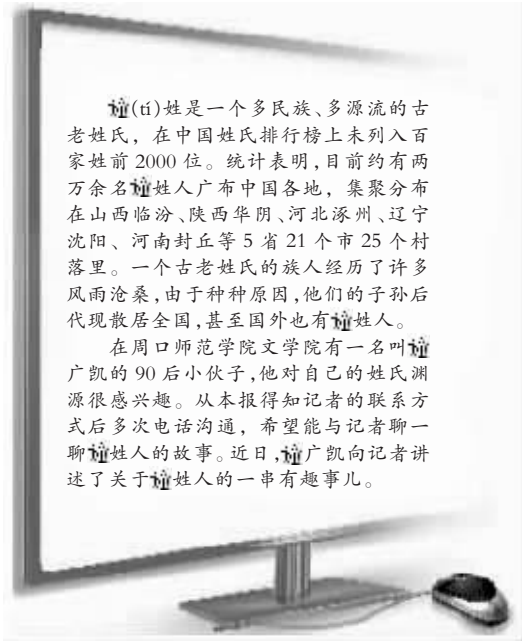 (tí)姓是一个多民族、多源流的古
老姓氏，在中国姓氏排行榜上未列入百
家姓前 2000 位。统计表明，目前约有两
万余名姓人广布中国各地，集聚分布
在山西临汾、陕西华阴、河北涿州、辽宁
沈阳、河南封丘等 5 省 21 个市 25 个村
落里。一个古老姓氏的族人经历了许多
风雨沧桑，由于种种原因，他们的子孙后
代现散居全国，甚至国外也有姓人。
在周口师范学院文学院有一名叫
广凯的 90 后小伙子，他对自己的姓氏渊
源很感兴趣。从本报得知记者的联系方
式后多次电话沟通，希望能与记者聊一
聊姓人的故事。近日，广凯向记者讲
述了关于姓人的一串有趣事儿。